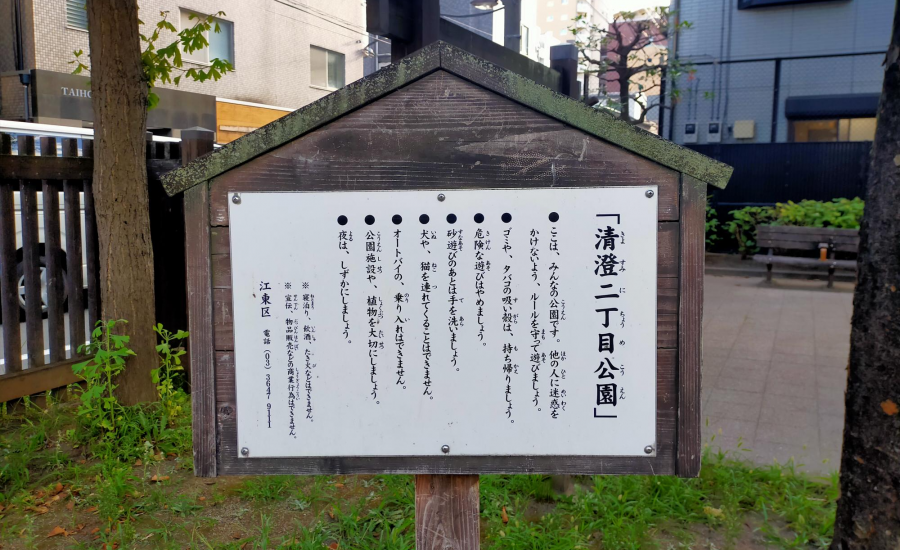 「清澄二丁目公園」
●ここは、みんなの公園です。他の人に迷惑を
かけないよう、ルールを守って遊びましょう。
●ゴミや、タバコの吸い殻は、持ち帰りましょう。
●危険な遊びはやめましょう。
●砂遊びのあとは手を洗いましょう。
●犬や、猫を連れてくることはできません。
●オートバイの、乗り入れはできません。
●公園施設や、植物を大切にしましょう。
●夜は、しずかにしましょう。
※ 寝泊り、飲酒、たき火などはできません。
※ 宣伝、物品販売などの商業行為はできません。
江東区 電話(03)3647 9111